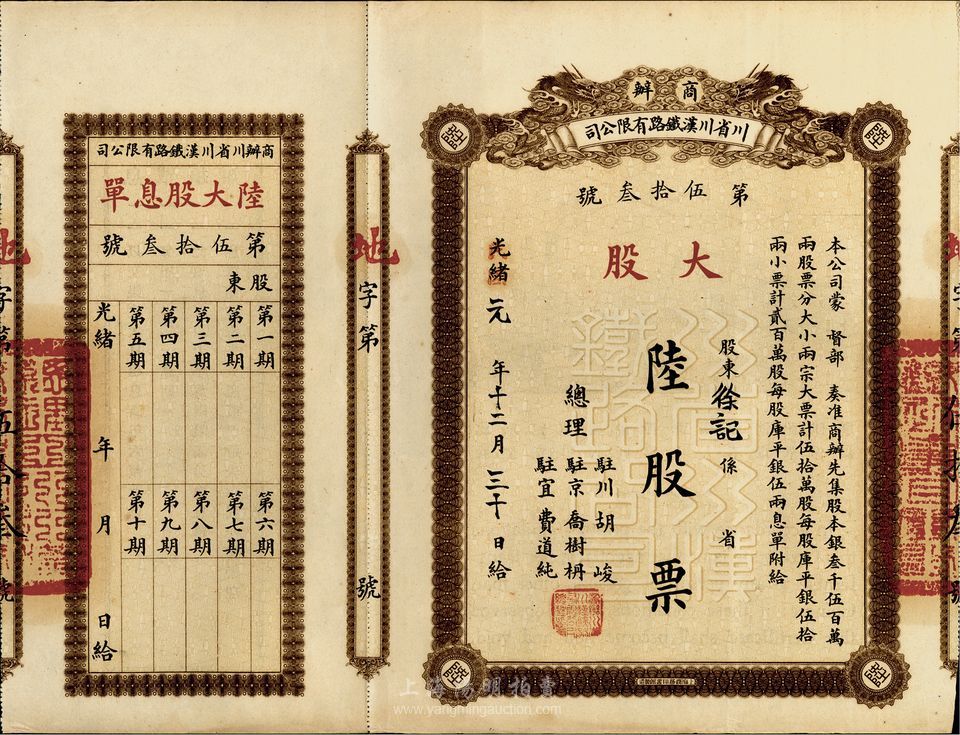 商辦
川省川漢鐵路有限公司
第伍拾叁號
大股
本公司蒙 督部 奏准商辦先集股本銀叁千伍百萬
兩股票分大小兩宗大票計伍拾萬股每股庫平銀伍拾
兩小票計貳百萬股每股庫平銀伍兩息單附給
股東徐記係 省
陸股票
總理
駐川胡峻
駐京喬樹枏
駐宜費道純
光緒元年十二月三十日給
地字第 號
商辦川省川漢鐵路有限公司
陸大股息單
第伍拾叁號
股東
第一期
第二期
第三期
第四期
第五期
第六期
第七期
第八期
第九期
第十期
光緒 年 月 日給
地字第伍拾叁號
上海陽明拍賣
www.yangmingauction.com